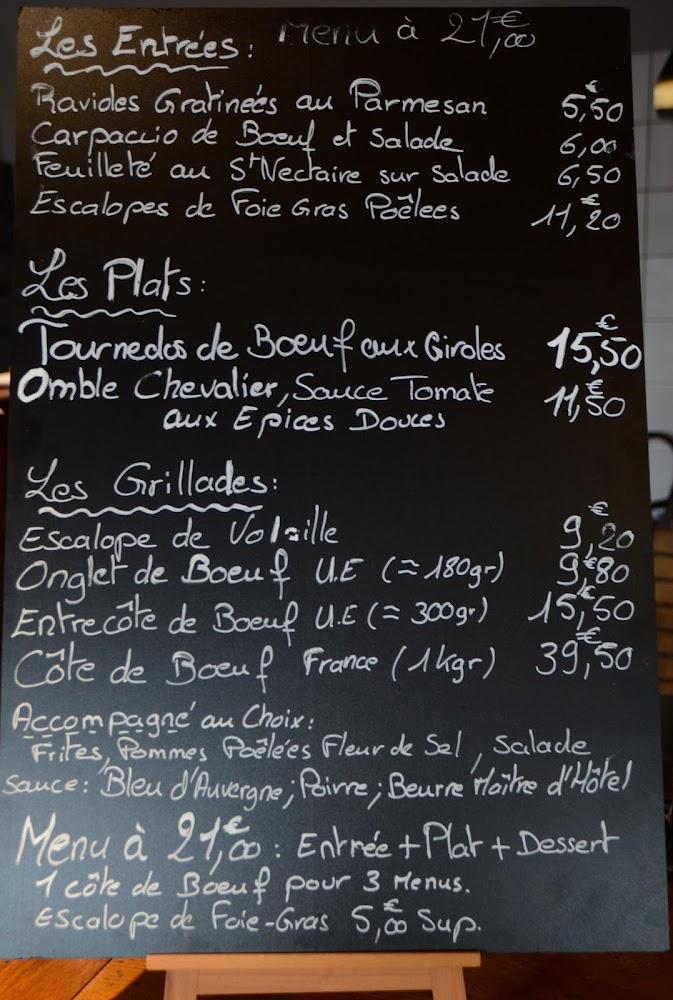 Les Entrées: Menu à 21,00€
Ravioles Gratineés au Parmesan 5,50€
Carpaccio de Boeuf et Salade 6,00
Feuilleté au St Nectaire sur Salade 6,50€
Escalopes de Foie Gras Poêlees 11,20€
Les Plats:
Tournedos de Boeuf aux Giroles 15,50€
Omble Chevalier, Sauce Tomate 11,50€
aux Epices Douces
Les Grillades:
Escalope de Volaille 9,20€
Onglet de Boeuf U.E (≈180gr) 9,80€
Entrecôte de Boeuf U.E (≈300gr) 15,50€
Côte de Boeuf France (1kgr) 39,50€
Accompagné au Choix:
Frites, Pommes Poêlées Fleur de Sel, Salade
Sauce: Bleu d'Auvergne; Poivre; Beurre Maître d'Hôtel
Menu à 21,00€: Entrée + Plat + Dessert
1 côte de Boeuf pour 3 Menus.
Escalope de Foie-Gras 5,00€ Sup.